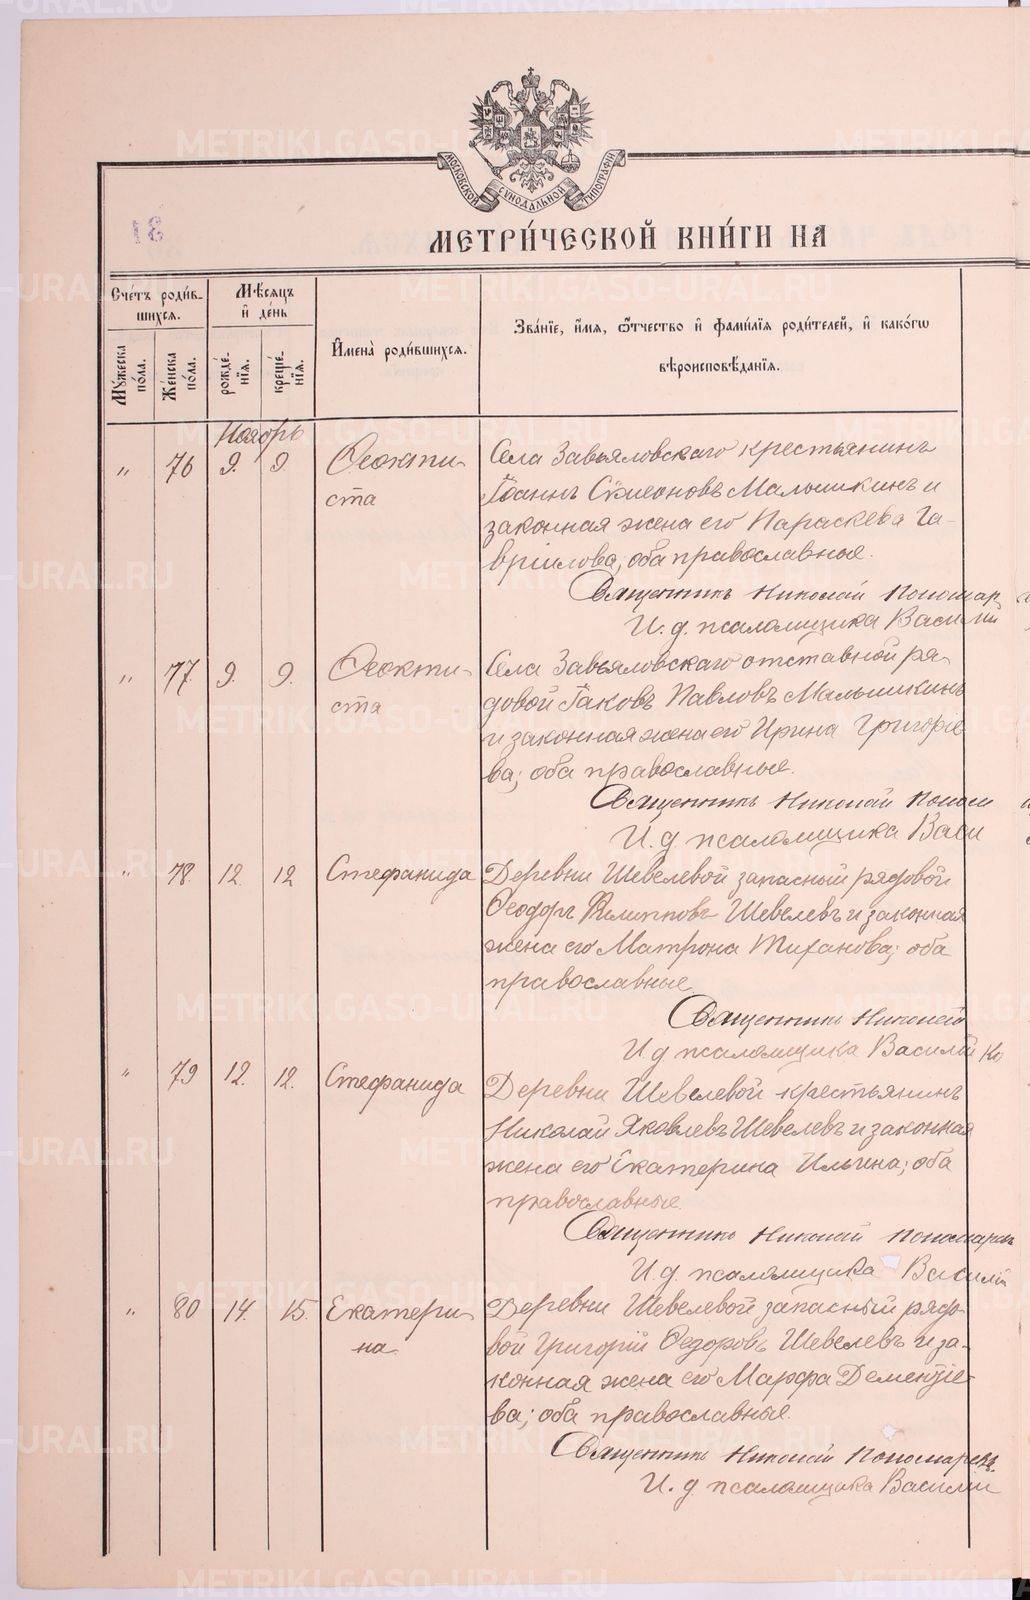 МОСКОВСКОЙ СѴНОДАЛЬНОЙ ТИПОГРАФІИ
18
МЕТРИ́ЧЕСКОЙ КНИ́ГИ НА
Сче́тъ роди́в-
шихся.
Мꙋ́жеска по́ла.
Же́нска по́ла.
Мѣ́сяцъ
и҆ де́нь
рожде́-
нїѧ.
креще́-
нїѧ.
И҆мена̀ роди́вшихсѧ.
Зва́нїе, и҆́мя, ѻ҆́тчество и҆ фами́лїѧ роди́телей, и҆ како́гѡ
вѣроисповѣ́данїѧ.
Ноябрь
" 76 9. 9. Ѳеокти-
ста
Села Завьяловскаго крестьянинъ
Іоаннъ Сѵмеоновъ Малышкинъ и
законная жена его Параскева Га-
вріилова; оба православные.
Священникъ Николай Пономар
И. д. псаломщика Василій
" 77. 9. 9. Ѳеокти-
ста
Села Завьяловскаго отставной ря-
довой Іаковъ Павловъ Малышкинъ
и законная жена его Ирина Григоріе
ва; оба православные.
Священникъ Николай Поном
И. д. псаломщика Васи
" 78. 12. 12 Стефанида
Деревни Шевелевой запасный рядовой
Ѳеодоръ Филипповъ Шевелевъ и законная
жена его Матрона Тиханова; оба
православные.
Священникъ Николай
И д псаломщика Василій Ко
" 79 12. 12. Стефанида
Деревни Шевелевой крестьянинъ
Николай Яковлевъ Шевелевъ и законная
жена его Екатерина Ильина; оба
православные.
Священникъ Николай Пономарев
И. д. псаломщика Василій
" 80 14. 15. Екатери-
на
Деревни Шевелевой запасный рядо-
вой Григорій Ѳедоровъ Шевелевъ и за-
конная жена его Марфа Дементіе-
ва; оба православные.
Священникъ Николай Пономаревъ
И. д псаломщика Василій
METRIKI.GASO-URAL.RU